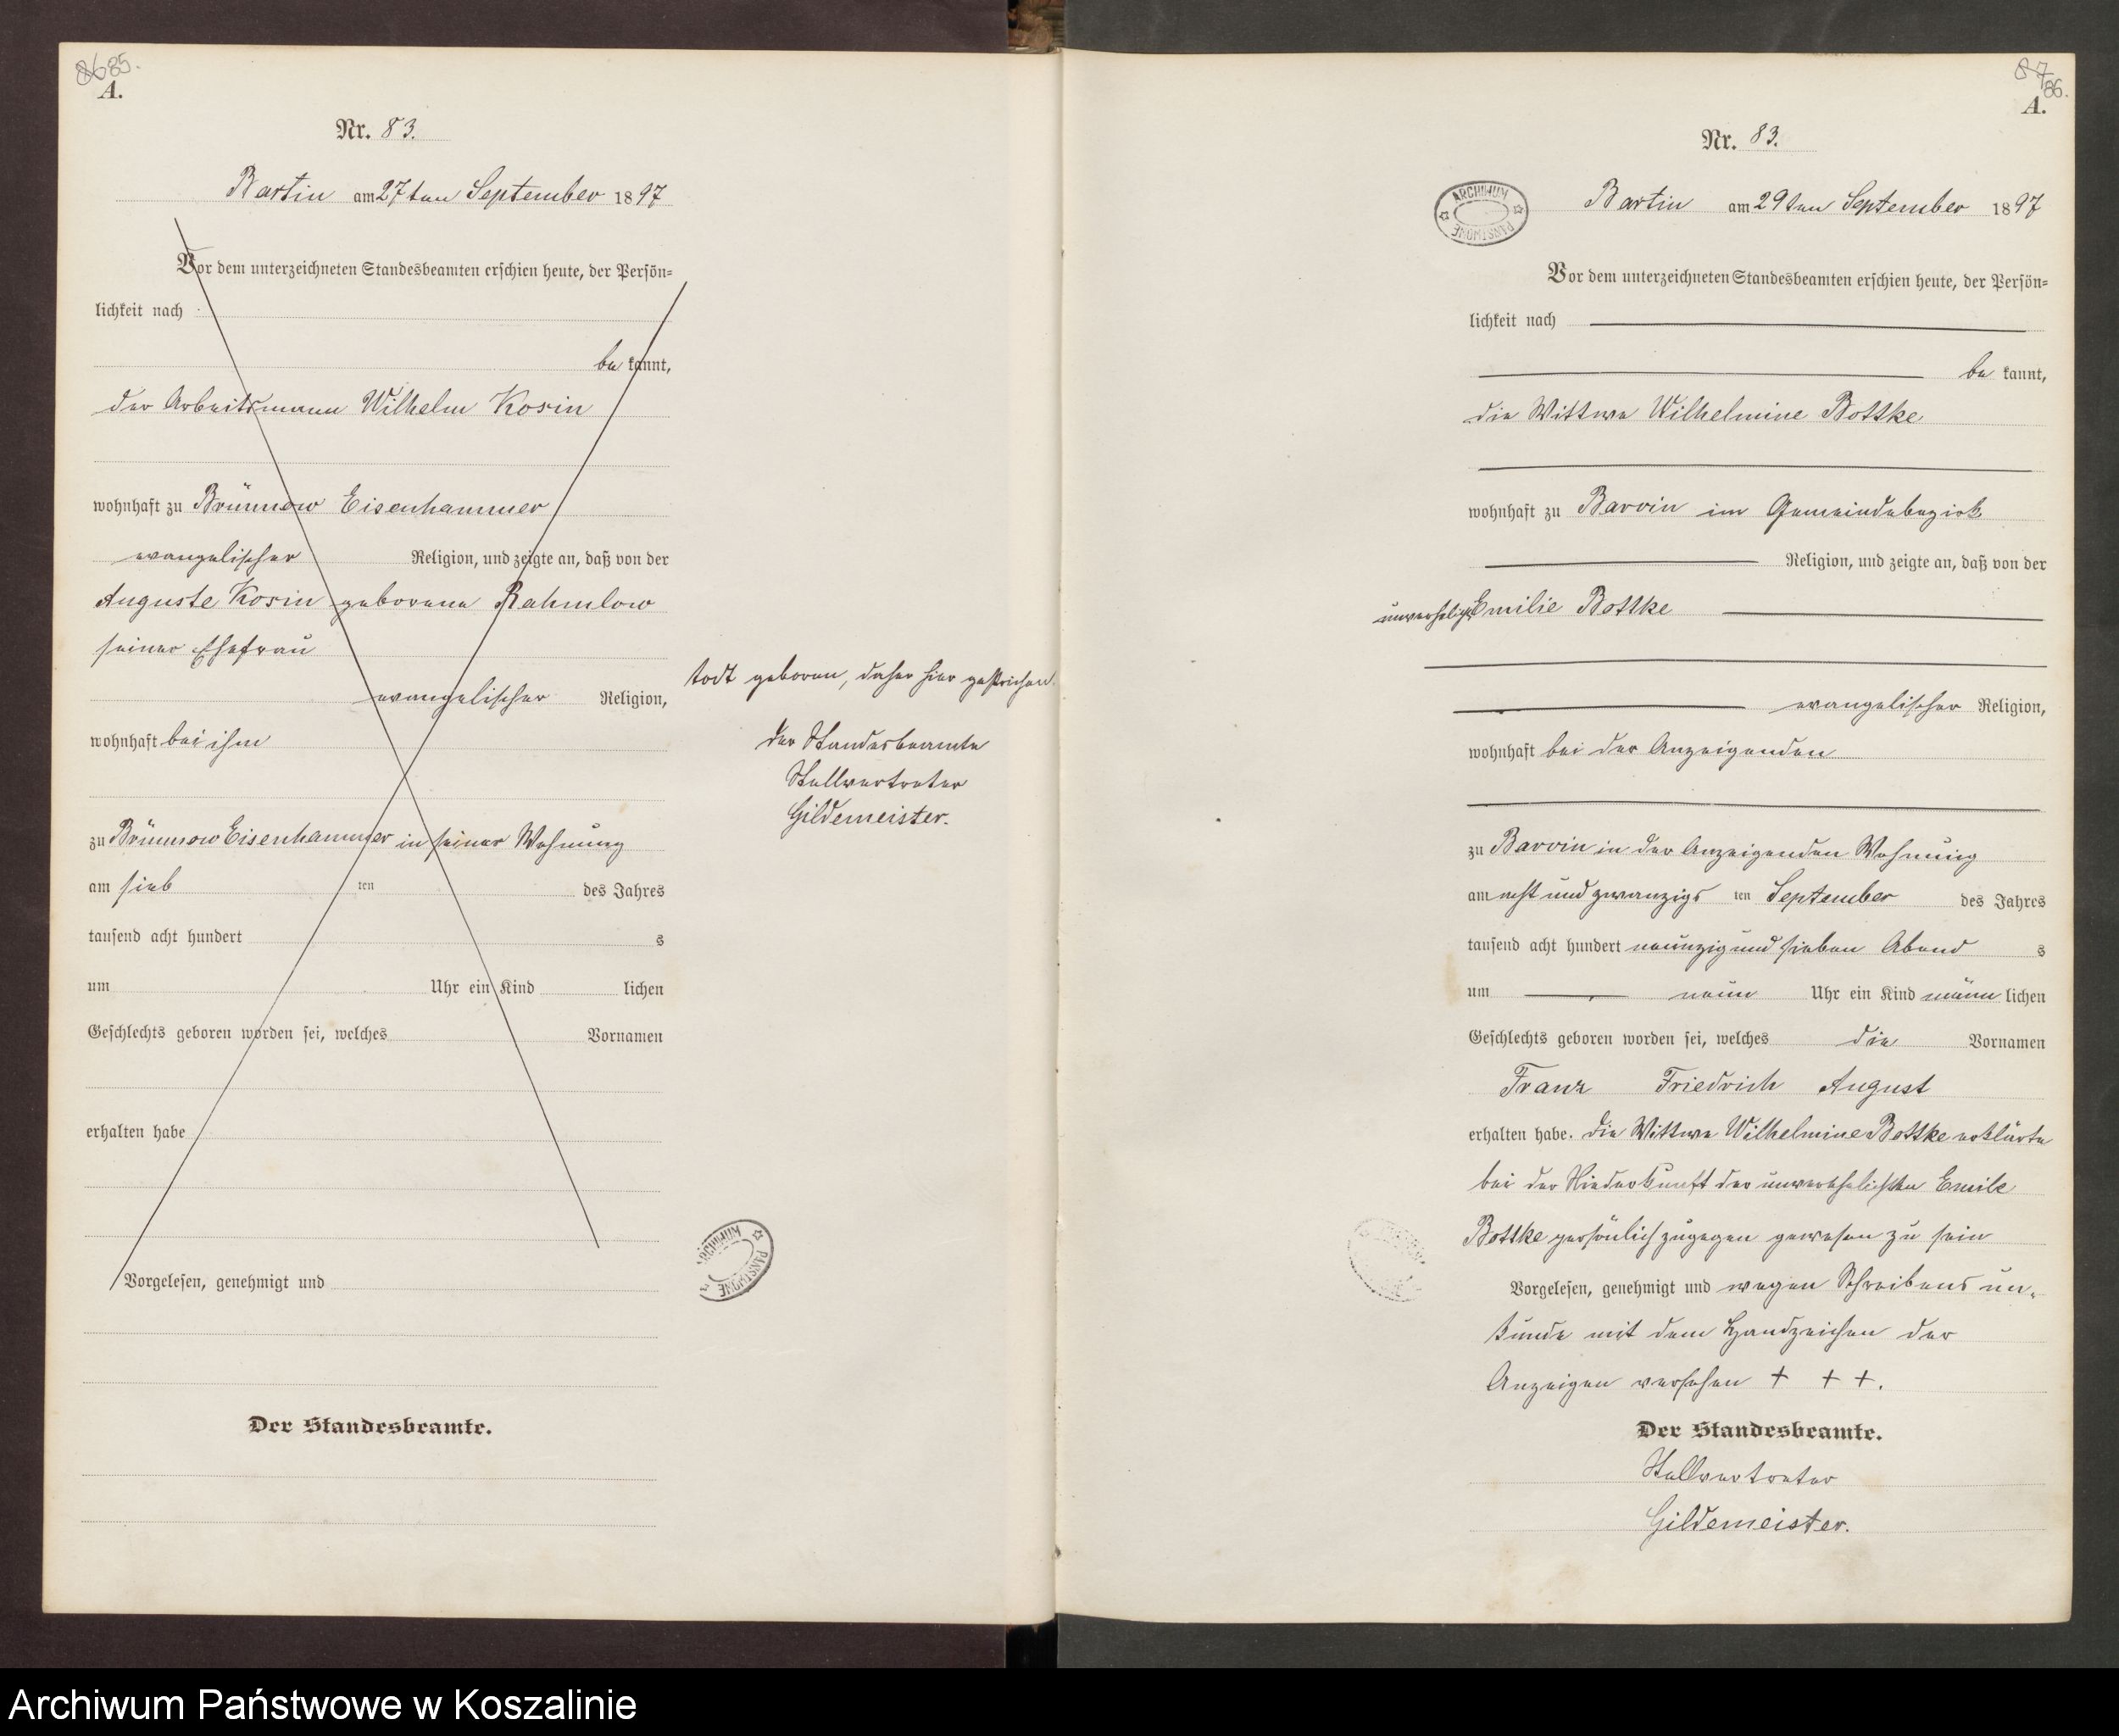 8685.
A.
Nr. 83.
Bartin am 27ten September 1897
Vor dem unterzeichneten Standesbeamten erschien heute, der Persön=
lichkeit nach
be kannt,
der Arbeitsmann Wilhelm Kosin
wohnhaft zu Brünnow Eisenhammer
evangelischer Religion, und zeigte an, daß von der
Auguste Kosin geborene Rahmlow
seiner Ehefrau
evangelischer Religion,
wohnhaft bei ihm
zu Brünnow Eisenhammer in seiner Wohnung
am sieb ten des Jahres
tausend acht hundert s
um Uhr ein Kind lichen
Geschlechts geboren worden sei, welches Vornamen
erhalten habe
Vorgelesen, genehmigt und
Der Standesbeamte.
todt geboren, daher hier gestrichen.
Der Standesbeamte
Stellvertreter
Gildemeister.
ARCHIWUM PAŃSTWOWE
87
86.
A.
Nr. 83.
ARCHIWUM PAŃSTWOWE
Bartin am 29ten September 1897
Vor dem unterzeichneten Standesbeamten erschien heute, der Persön=
lichkeit nach
be kannt,
die Wittwe Wilhelmine Bottke
wohnhaft zu Barvin im Gemeindebezirk
Religion, und zeigte an, daß von der
unverehelichte Emilie Bottke
evangelischer Religion,
wohnhaft bei der Anzeigenden
zu Barvin in der Anzeigenden Wohnung
am acht und zwanzigs ten September des Jahres
tausend acht hundert neunzig und sieben Abend s
um neun Uhr ein Kind männ lichen
Geschlechts geboren worden sei, welches die Vornamen
Franz Friedrich August
erhalten habe. Die Wittwe Wilhelmine Bottke erklärte
bei der Niederkunft der unverehelichten Emile
Bottke persönlich zugegen gewesen zu sein
Vorgelesen, genehmigt und wegen Schreibens un=
kunde mit dem Handzeichen der
Anzeigen versehen + + +.
Der Standesbeamte.
Stellvertreter
Gildemeister.
Archiwum Państwowe w Koszalinie